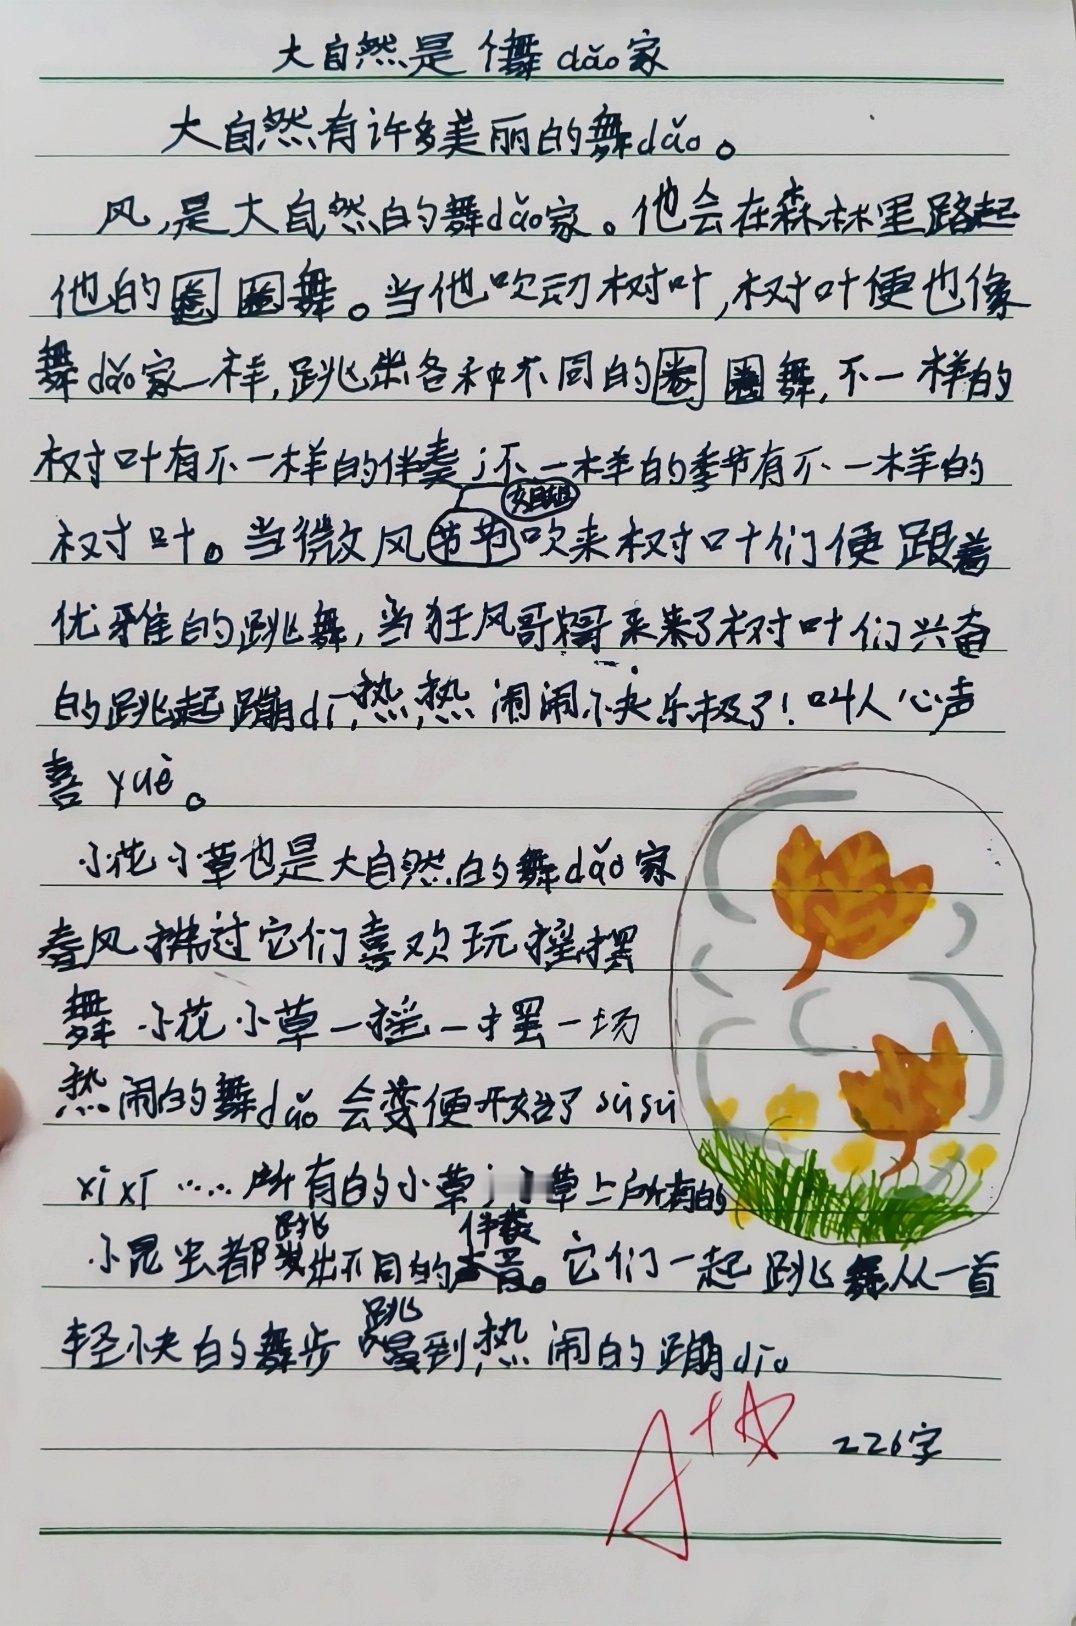 大自然是个舞dǎo家
大自然有许多美丽的舞dǎo。
风,是大自然的舞dǎo家。他会在森林里路起
他的圈圈舞。当他吹动树叶,树叶便也像
舞dǎo家一样,跳出各种不同的圈圈舞,不一样的
树叶有不一样的伴奏;不一样的季节有不一样的
姐姐
树叶。当微风节节吹来树叶们便跟着
优雅的跳舞,当狂风哥哥来来了树叶们兴奋
的跳起蹦dí,热,热闹闹,快乐极了!叫人心声
喜yuè。
小花小草也是大自然的舞dǎo家
春风拂过它们喜欢玩摇摆
舞小花小草一摇一摆一场
热闹的舞dǎo会变便开始了sùsù
xīxī……所有的小草;小草上所有的
跳 伴奏
小昆虫都出不同的声音。它们一起跳舞从一首
跳
轻快的舞步到热闹的蹦dí。
A+
226字